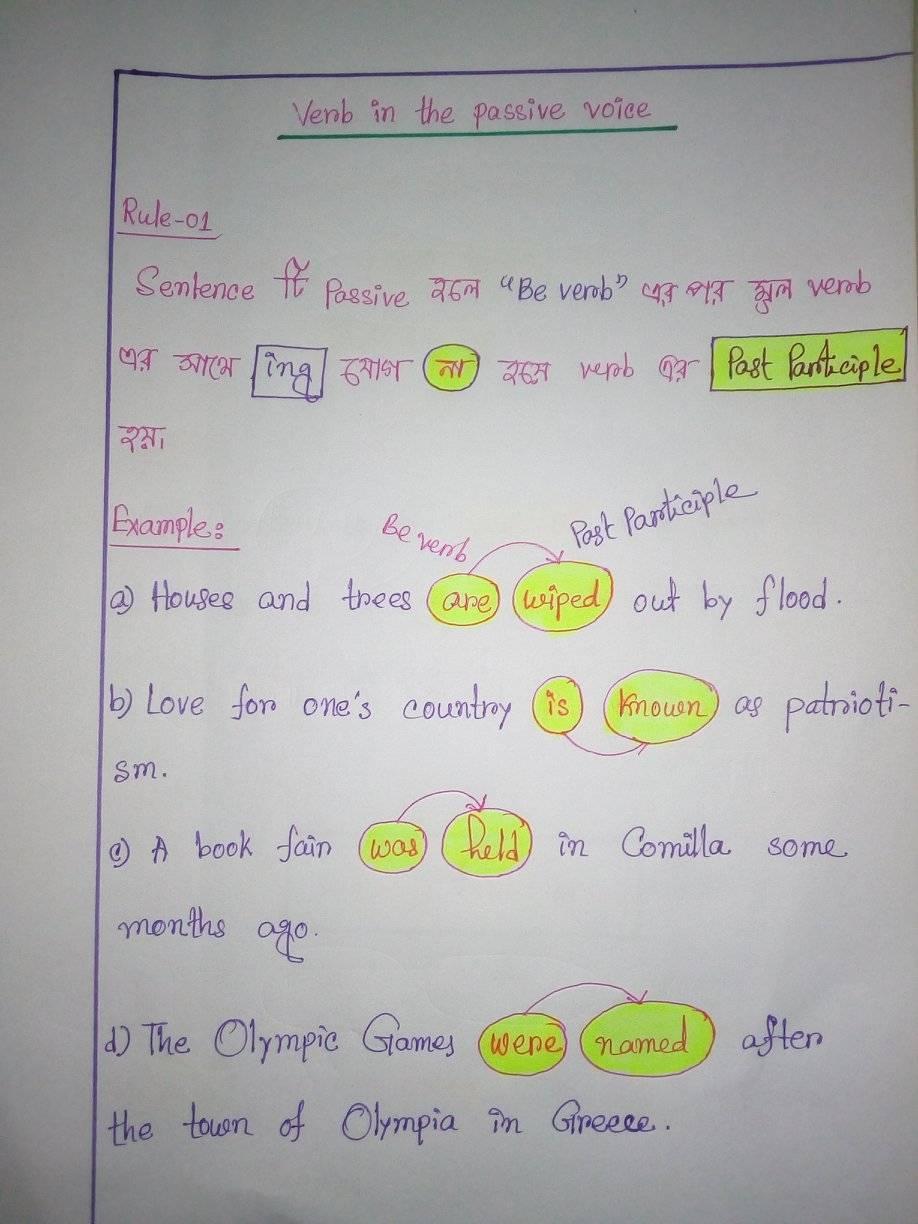 Verb in the passive voice
Rule-01
Sentence টি Passive হলে "Be verb" এর পর মুল verb
এর সাথে ing যোগ না হয়ে verb এর Past Participle
হয়।
Example:
Be verb Past Participle
a) Houses and trees are wiped out by flood.
b) Love for one's country is known as patrioti-
sm.
c) A book fair was held in Comilla some
months ago.
d) The Olympic Games were named after
the town of Olympia in Greece.